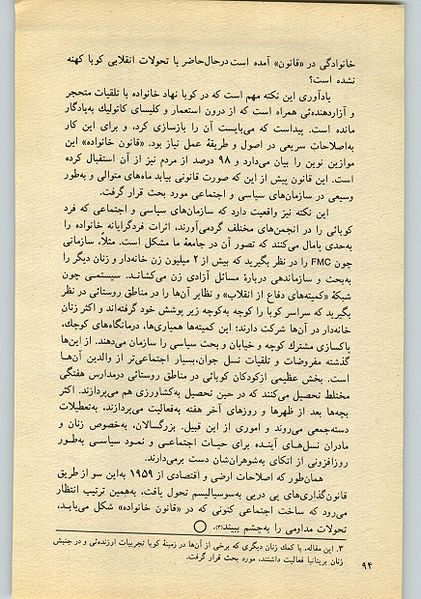 خانوادگی در «قانون» آمده است درحال‌حاضر با تحولات انقلابی کوبا کهنه
نشده است؟
یادآوری این نکته مهم است که در کوبا نهاد خانواده با تلقیات متحجر
و آزاردهنده‌ئی همراه است که از درون استعمار و کلیسای کاتولیک به‌یادگار
مانده است. پیداست که می‌بایست آن را بازسازی کرد، و برای این کار
به‌اصلاحات سریعی در اصول و طریقهٔ عمل نیاز بود. «قانون خانواده» این
موازین نوین را بیان می‌دارد و ۹۸ درصد از مردم نیز از آن استقبال کرده
است. این قانون پیش از این که صورت قانونی بیابد ماه‌های متوالی و به‌طور
وسیعی در سازمان‌های سیاسی و اجتماعی مورد بحث قرار گرفت.
این نکته نیز واقعیت دارد که سازمان‌های سیاسی و اجتماعی که فرد
کوبائی را در انجمن‌های مختلف گردمی‌آورند، اثرات فردگرایانه خانواده را
به‌حدی پامال می‌کنند که تصور آن در جامعهٔ ما مشکل است. مثلاً، سازمانی
چون FMC را در نظر بگیرید که بیش از ۲ میلیون زن خانه‌دار و زنان دیگر را
به‌بحث و سازماندهی دربارهٔ مسائل آزادی زن می‌کشاند. سیستمی چون
شبکهٔ «کمیته‌های دفاع از انقلاب» و نظایر آن‌ها را در مناطق روستائی در نظر
بگیرید که سراسر کوبا را کوچه به‌کوچه زیر پوشش خود گرفته‌اند و اکثر زنان
خانه‌دار در آن‌ها شرکت دارند؛ این کمیته‌ها همیاری‌ها، درمانگاه‌های کوچك،
پاکسازی مشترك کوچه و خیابان و بحث سیاسی را سازمان می‌دهند. از این‌ها
گذشته مفروضات و تلقیات نسل جوان، بسیار اجتماعی‌تر از والدین آن‌ها
است. بخش عظیمی ازکودکان کوبائی در مناطق روستائی درمدارس هفتگی
مختلط تحصیل می‌کنند که در حین تحصیل به‌کشاورزی هم می‌پردازند. اکثر
بچه‌ها بعد از ظهرها و روزهای آخر هفته به‌فعالیت می‌پردازند، به‌تعطیلات
دسته‌جمعی می‌روند و اموری از این قبیل. بزرگسالان، به‌خصوص زنان و
مادران نسل‌های آینده برای حیات اجتماعی و نمود سیاسی به‌طور
روزافزونی از اتکای به‌شوهران‌شان دست برمی‌دارند.
همان‌طور که اصلاحات ارضی و اقتصادی از ۱۹۵۹ به‌این سو از طریق
قانون‌گذاری‌های پی درپی به‌سوسیالیسم تحول یافت، به‌همین ترتیب انتظار
می‌رود که ساخت اجتماعی کنونی که در «قانون خانواده» شکل می‌یابد،
تحولات مداومی را به‌چشم ببیند(۳).
۳. این مقاله، با کمك زنان دیگری که برخی از آن‌ها در زمینهٔ کوبا تجربیات ارزنده‌ئی و در جنبش
زنان بریتانیا فعالیت داشتند، مورد بحث قرار گرفت.
۹۴